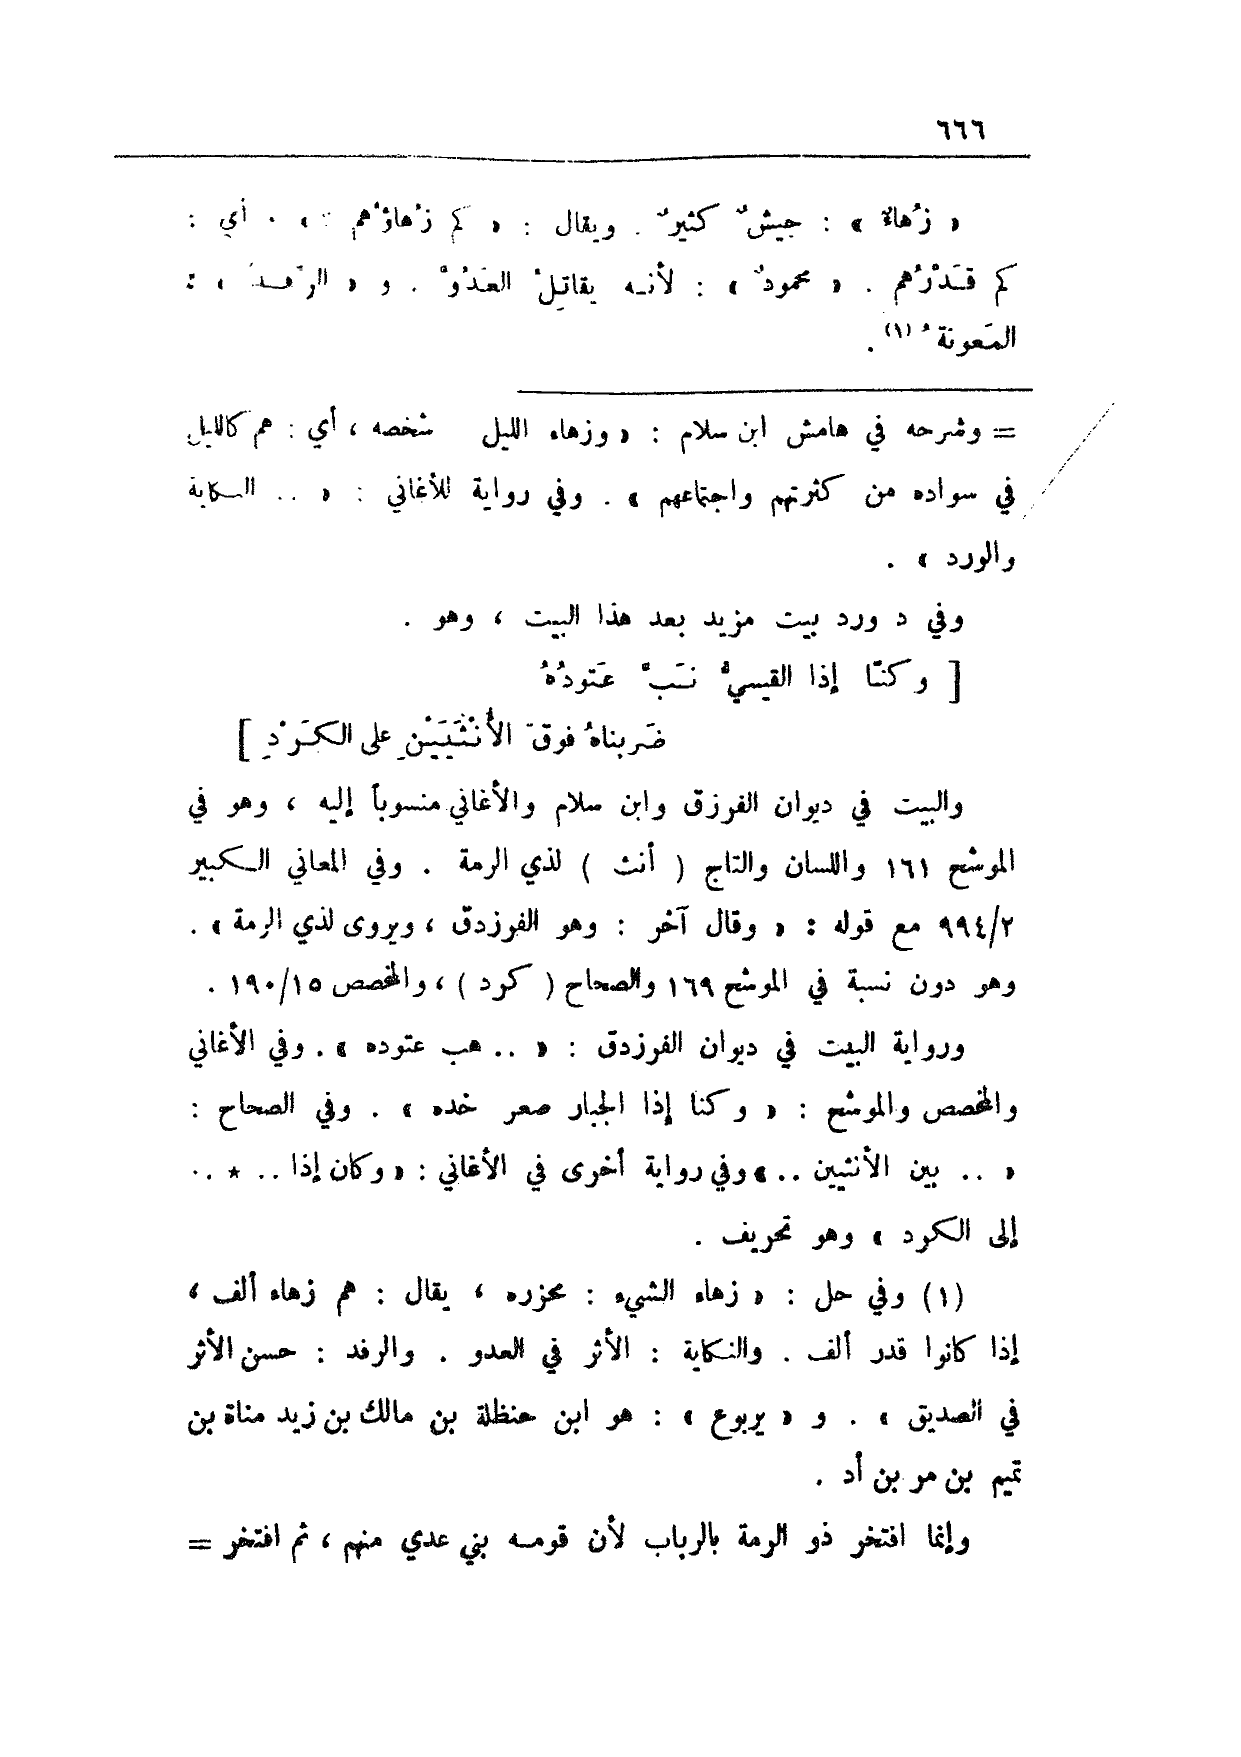 ٦٦٦
« زُهاءٌ » : جيشٌ كثيرٌ . ويقال : « كم زُهاؤُهم » . أي :
كم قَدْرُهم . « محمودٌ » : لأنه يقاتلُ العَدُوَّ . و « الرِّفد » :
المَعونةُ (١) .
= وشرحه في هامش ابن سلام : « وزهاء الليل شخصه ، أي : هم كالليل
في سواده من كثرتهم واجتماعهم » . وفي رواية للأغاني : « .. النكاية
والورد » .
وفي د ورد بيت مزيد بعد هذا البيت ، وهو .
[ وكنّا إذا القيسيُّ نَبَّ عَتودُهُ
ضَربناهُ فوقَ الأُنْثَيَيْنِ على الكَرْدِ ]
والبيت في ديوان الفرزق وابن سلام والأغاني منسوباً إليه ، وهو في
الموشح ١٦١ واللسان والتاج ( أنث ) لذي الرمة . وفي المعاني الكبير
٩٩٤/٢ مع قوله : « وقال آخر : وهو الفرزدق ، ويروى لذي الرمة » .
وهو دون نسبة في الموشح ١٦٩ والصحاح ( كرد ) ، والمخصص ١٩٠/١٥ .
ورواية البيت في ديوان الفرزدق : « .. هب عتوده » . وفي الأغاني
والمخصص والموشح : « وكنا إذا الجبار صعر خده » . وفي الصحاح :
« .. بين الأنثيين .. » وفي رواية أخرى في الأغاني : « وكان إذا .. * ..
إلى الكرد » وهو تحريف .
(١) وفي حل : « زهاء الشيء : محزره ، يقال : هم زهاء ألف ،
إذا كانوا قدر ألف . والنكاية : الأثر في العدو . والرفد : حسن الأثر
في الصديق » . و « يربوع » : هو ابن حنظلة بن مالك بن زيد مناة بن
تميم بن مر بن أد .
وإنما افتخر ذو الرمة بالرباب لأن قومه بني عدي منهم ، ثم افتخر =